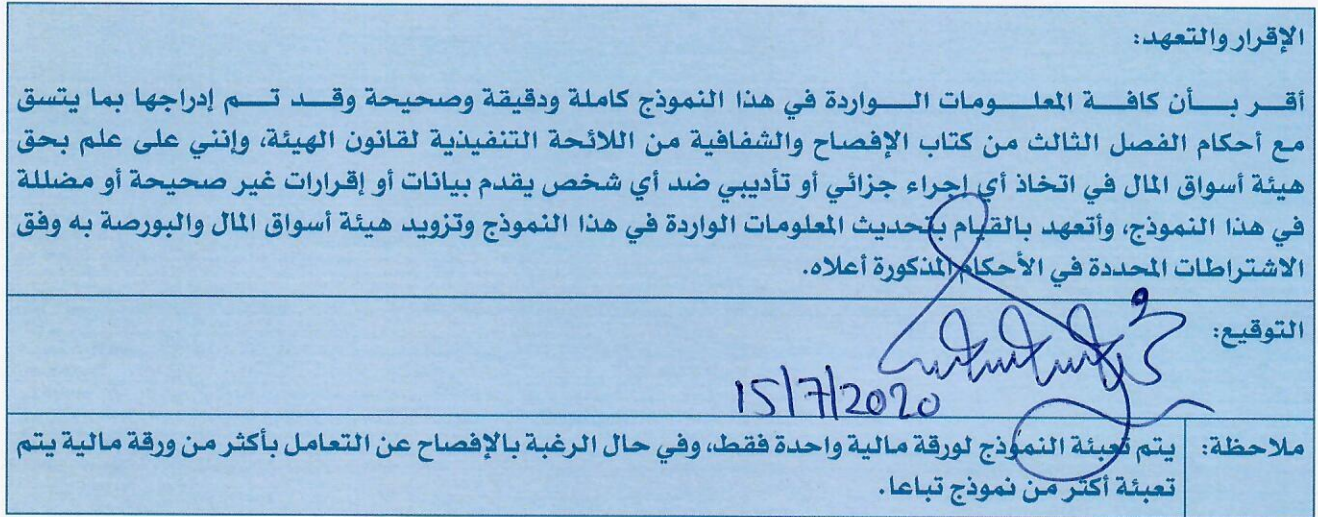 الإقرار والتعهد:
أقـــر بـــأن كافـــة المعلـــومات الـــواردة في هذا النموذج كاملة ودقيقة وصحيحة وقـــد تـــم إدراجها بما يتسق
مع أحكام الفصل الثالث من كتاب الإفصاح والشفافية من اللائحة التنفيذية لقانون الهيئة، وإنني على علم بحق
هيئة أسواق المال في اتخاذ أي إجراء جزائي أو تأديبي ضد أي شخص يقدم بيانات أو إقرارات غير صحيحة أو مضللة
في هذا النموذج، وأتعهد بالقيام بتحديث المعلومات الواردة في هذا النموذج وتزويد هيئة أسواق المال والبورصة به وفق
الاشتراطات المحددة في الأحكام المذكورة أعلاه.
التوقيع:
15/7/2020
ملاحظة: يتم تعبئة النموذج لورقة مالية واحدة فقط، وفي حال الرغبة بالإفصاح عن التعامل بأكثر من ورقة مالية يتم
تعبئة أكثر من نموذج تباعا.